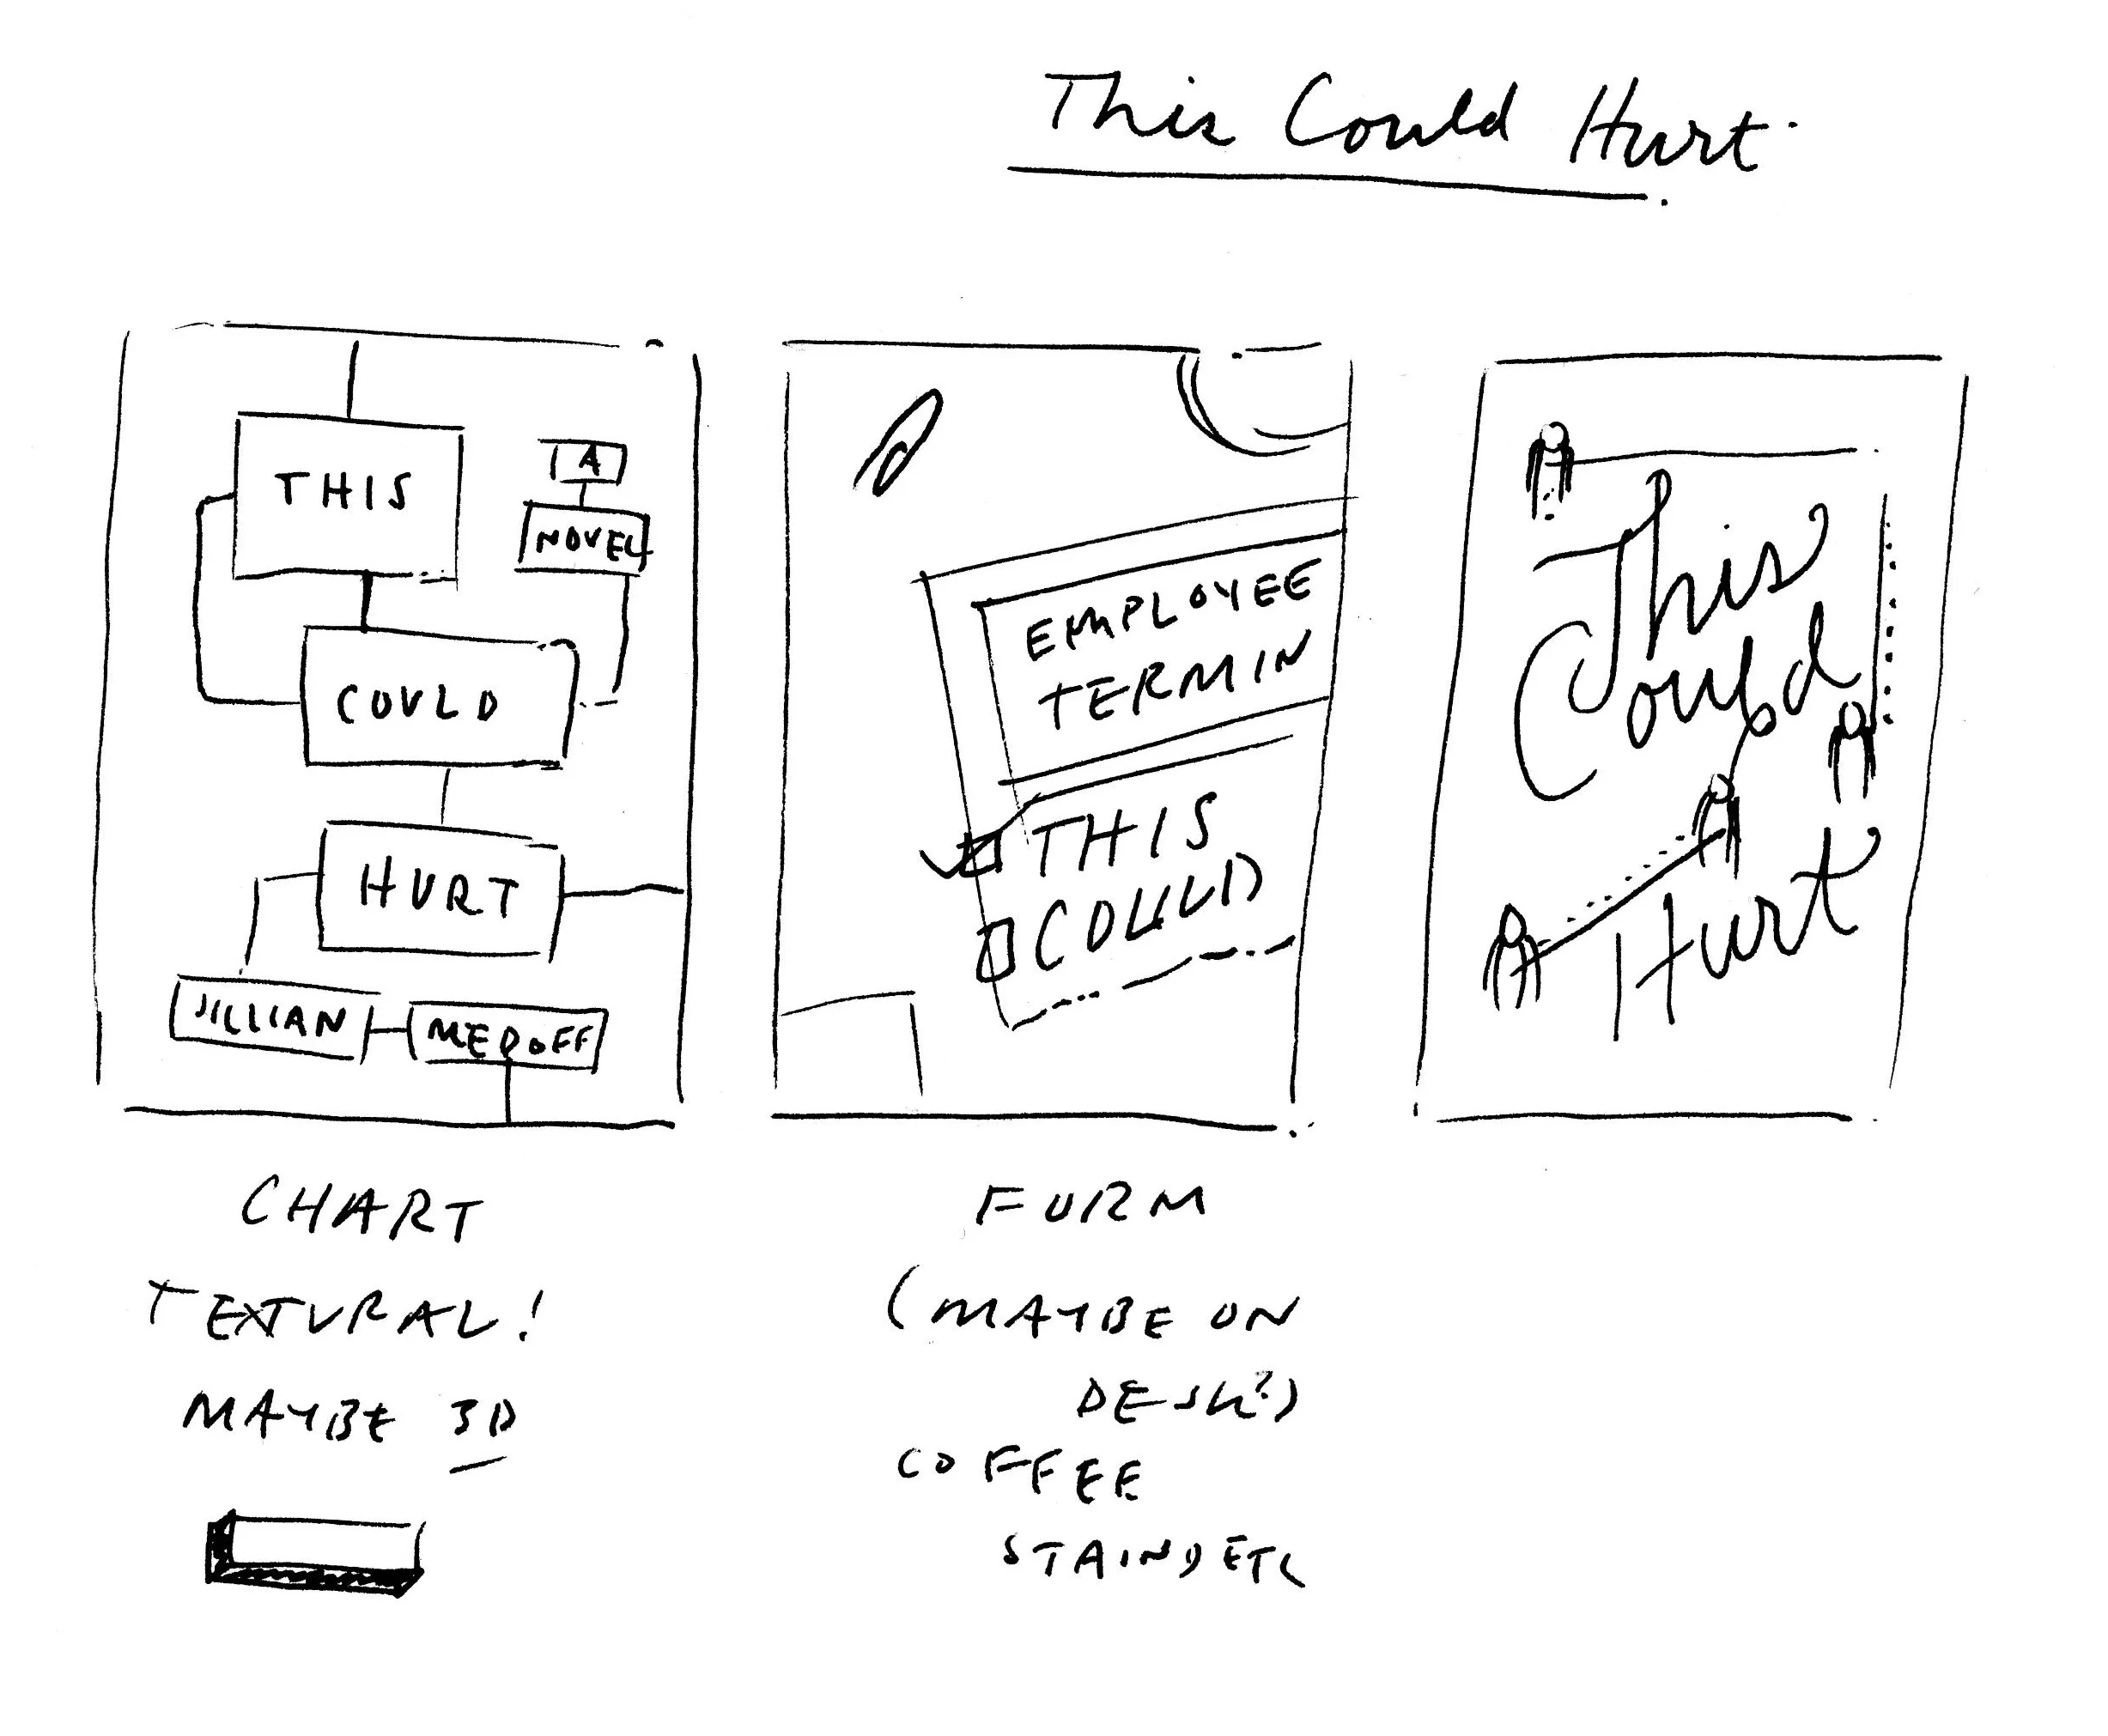 This Could Hurt
THIS
A
NOVEL
COULD
HURT
JILLIAN MEDOFF
CHART
TEXTURAL!
MAYBE 3D
EMPLOYEE
TERMIN
THIS
COULD
FORM
(MAYBE ON
DESK?)
COFFEE
STAIND ETC
This
Could
Hurt